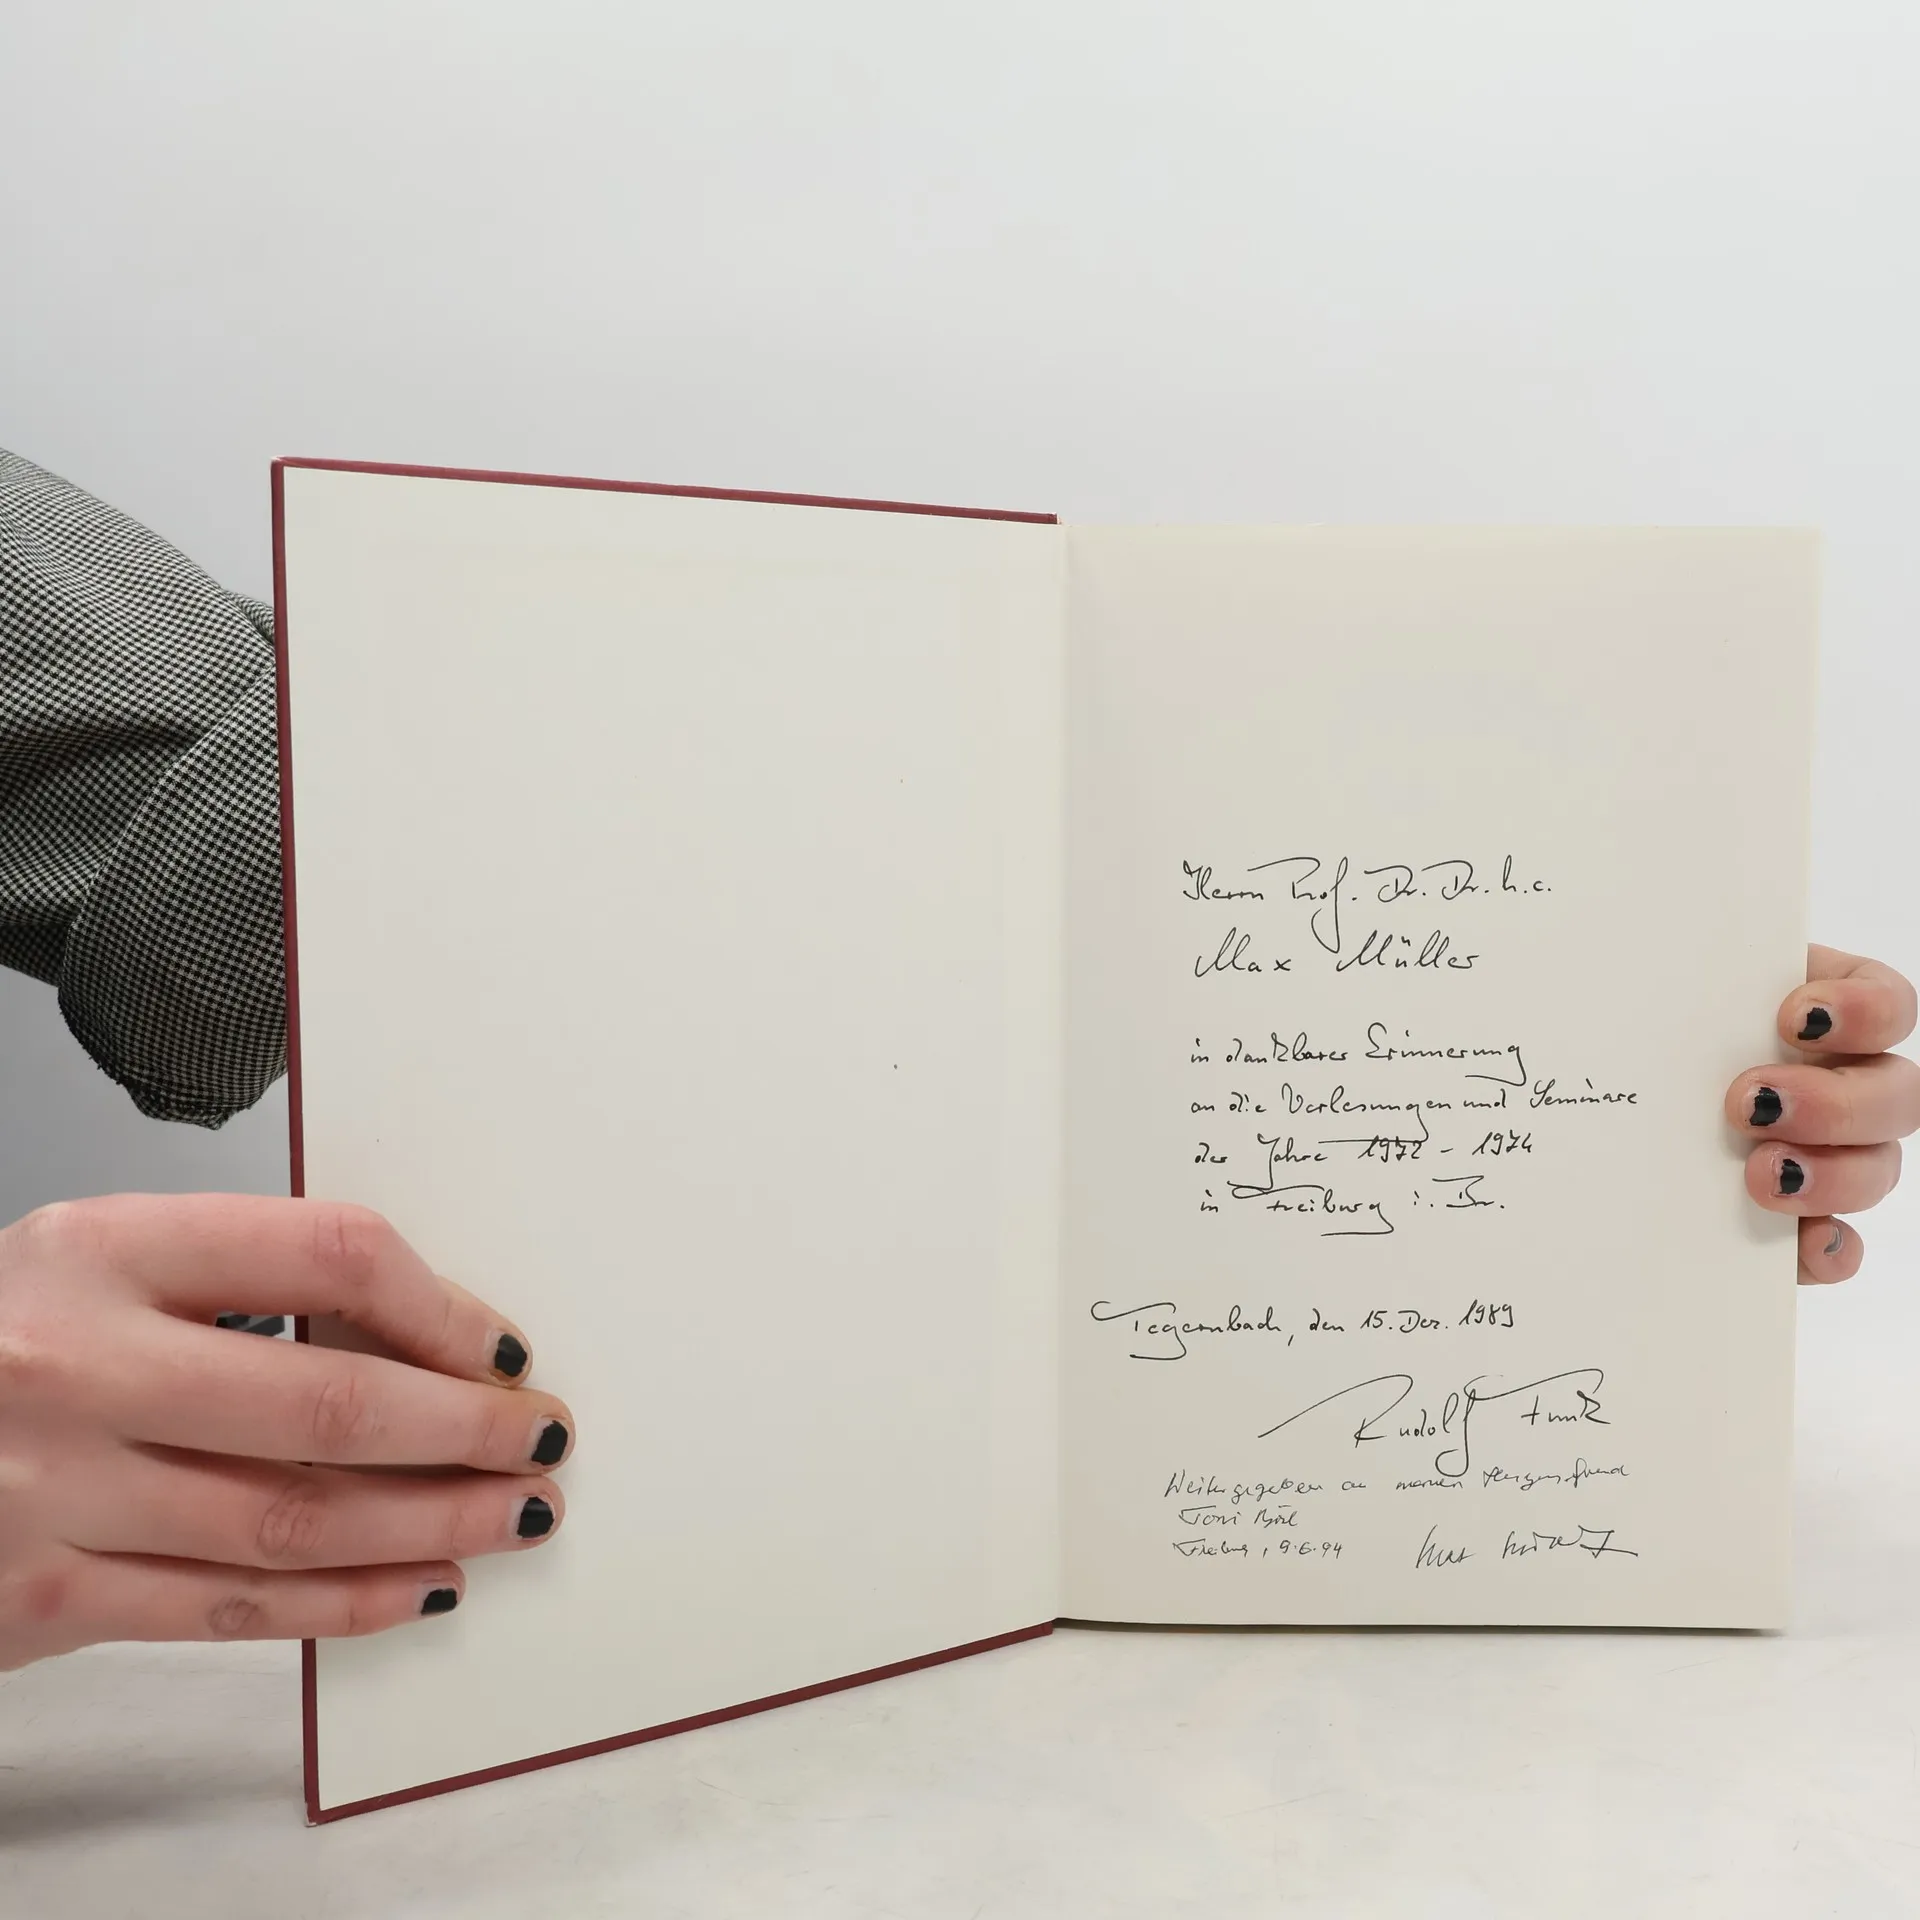 Herrn Prof. Dr. Dr. h.c.
Max Müller
in dankbarer Erinnerung
an die Vorlesungen und Seminare
der Jahre 1972 - 1974
in Freiburg i. Br.
Tegernbach, den 15. Dez. 1989
Rudolf Funk
Weitergegeben an meinen Herzensfreund
Toni
Freiburg, 9.6.94